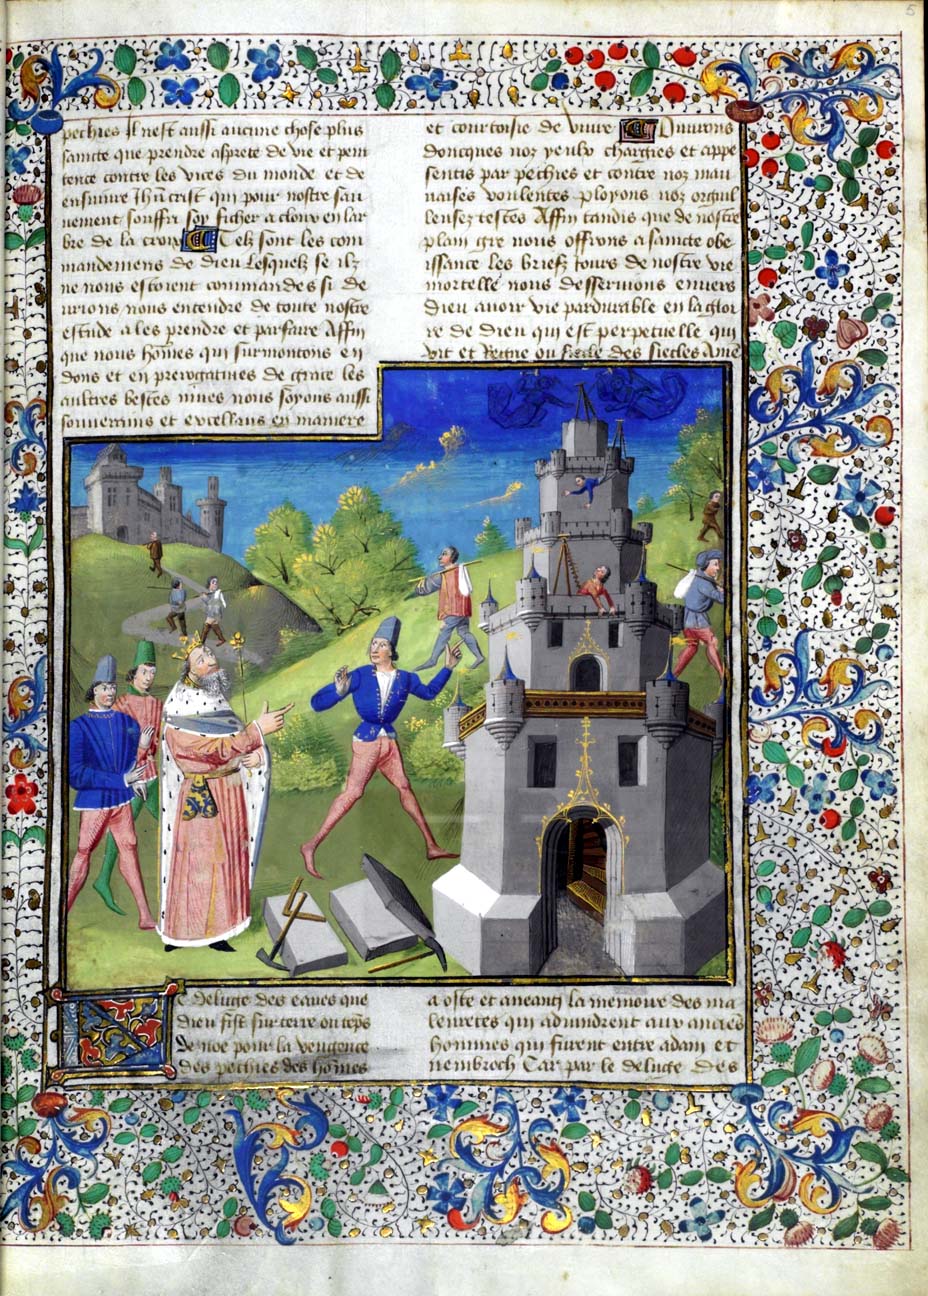 pechies Il nest aussi aucune chose plus
saincte que prendre asprete de vie et peni
tence contre les vices du monde et de
ensuivre Jhu crist qui pour nostre sau
uement souffri soy ficher a clouv en lar
bre de la croix Telz sont les com
mandemens de dieu Lesquelz se ilz
ne nous estoient commandes si de
urions nous entendre de toute nostre
estude a les prendre et parfaire Affin
que nous hommes qui surmontons en
dons et en prerogatiues de grace les
aultres bestes mues nous soyons aussi
souuerains et excellens en maniere
et courtoisie de viure Ouurons
doncques noz yeulx chargies et appe
sentis par pechies et contre noz mau
uaises voulentes ployons noz orguil
leuses testes Affin tandis que de nostre
plain gre nous offrons a saincte obe
issance les briefz jours de nostre vie
mortelle nous desseruions enuers
dieu auoir vie pardurable en la gloi
re de dieu qui est perpetuelle qui
vit et Regne ou siecle des siecles Ame
5
e deluge des eaues que
dieu fist sur terre ou teps
de noe pour la vengence
des pechies des homes
a oste et aneanti la memoire des ma
leuretes qui aduindrent aux anciens
hommes qui furent entre adam et
nembroch Car par le deluge des